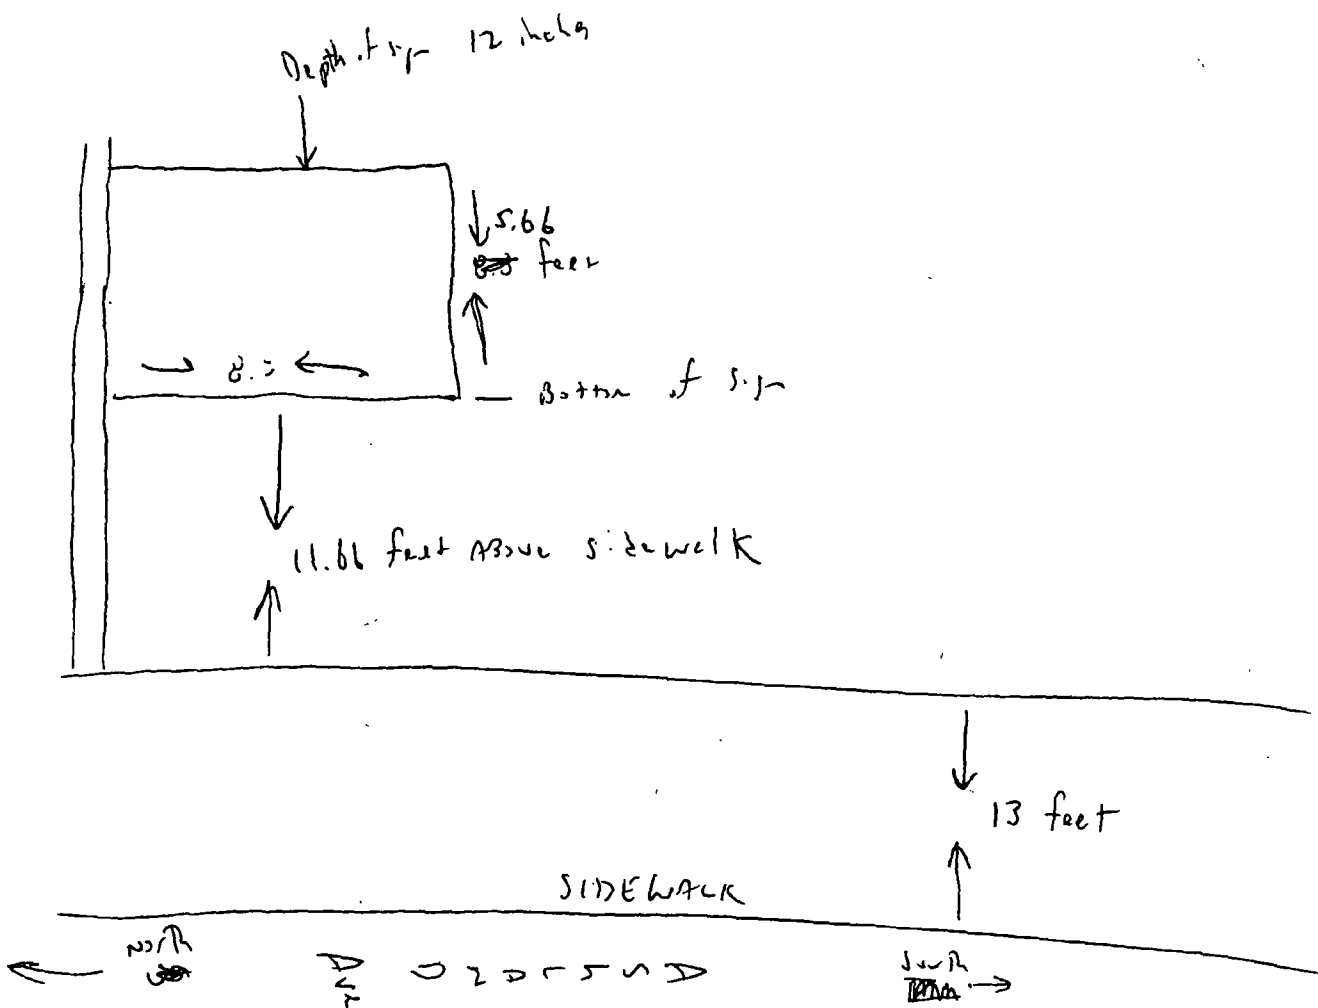 Depth of sign 12 inches
5.66
feet
8.3
Bottom of sign
11.66 feet ABove sidewalk
13 feet
SIDEWALK
North
South